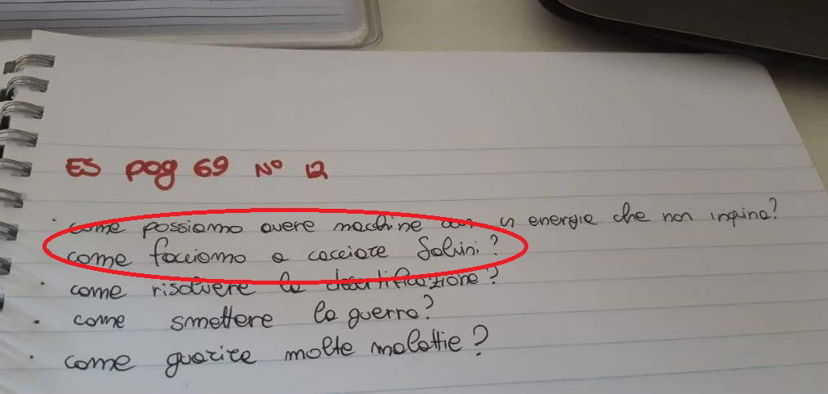 ES pag 69 N° 12
come possiamo avere macchine con un energie che non inquina?
come facciamo a cacciare Salvini?
come risolvere la desertificazione?
come smettere la guerra?
come guarire molte malattie?